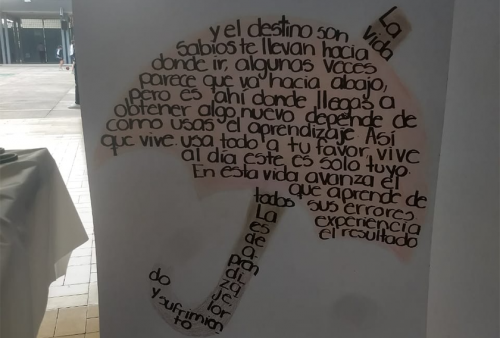 La
vida
y el destino son
sabios te llevan hacia
donde ir, algunos veces
parece que va hacia abajo,
pero es ahí donde llegas a
obtener algo nuevo depende de
como usas el aprendizaje. Así
que vive usa todo a tu favor vive
al día este es solo tuyo.
En esta vida avanza el
que aprende de
todos sus errores
La experiencia
es el resultado
de
a
pren
di
zaje
do lor
y sufrimien
to